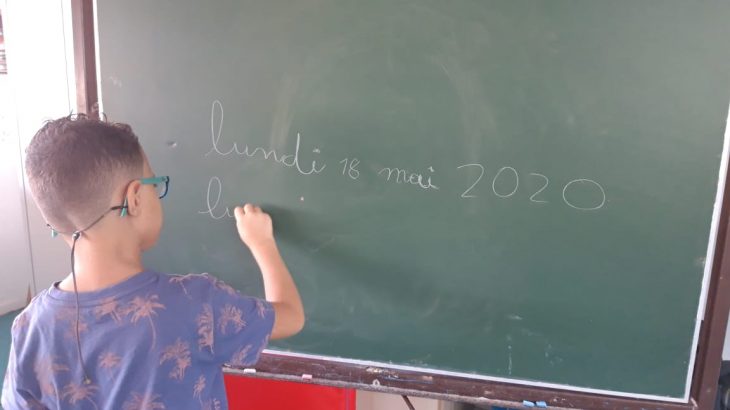 lundi 18 mai 2020
lu